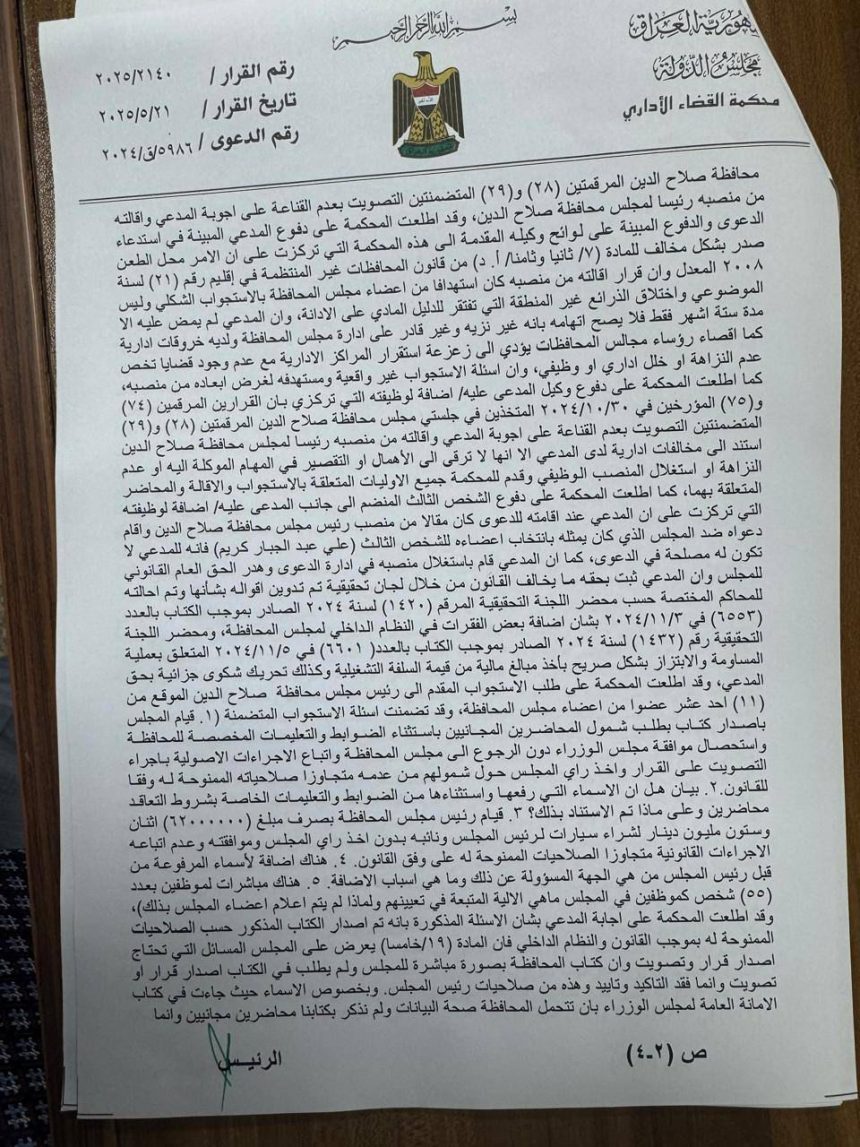 بسم الله الرحمن الرحيم
جمهورية العراق
مجلس الدولة
محكمة القضاء الأداري
رقم القرار / ٢٠٢٥/٢١٤٠
تاريخ القرار / ٢٠٢٥/٥/٢١
رقم الدعوى / ٥٩٨٦/ق/٢٠٢٤
محافظة صلاح الدين المرقمتين (٢٨) و(٢٩) المتضمنتين التصويت بعدم القناعة على اجوبة المدعي واقالته
من منصبه رئيسا لمجلس محافظة صلاح الدين، وقد اطلعت المحكمة على دفوع المدعي المبينة في استدعاء
الدعوى والدفوع المبينة على لوائح وكيله المقدمة الى هذه المحكمة التي تركزت على ان الامر محل الطعن
صدر بشكل مخالف للمادة (٧/ ثانيا وثامنا/ أ. د) من قانون المحافظات غير المنتظمة في إقليم رقم (٢١) لسنة
٢٠٠٨ المعدل وان قرار اقالته من منصبه كان استهدافا من اعضاء مجلس المحافظة بالاستجواب الشكلي وليس
الموضوعي واختلاق الذرائع غير المنطقة التي تفتقر للدليل المادي على الادانة، وان المدعي لم يمض عليه الا
مدة ستة اشهر فقط فلا يصح اتهامه بانه غير نزيه وغير قادر على ادارة مجلس المحافظة ولديه خروقات ادارية
كما اقصاء رؤساء مجالس المحافظات يؤدي الى زعزعة استقرار المراكز الادارية مع عدم وجود قضايا تخص
عدم النزاهة او خلل اداري او وظيفي، وان اسئلة الاستجواب غير واقعية ومستهدفه لغرض ابعاده من منصبه،
كما اطلعت المحكمة على دفوع وكيل المدعى عليه/ اضافة لوظيفته التي تركزي بان القرارين المرقمين (٧٤)
و(٧٥) المؤرخين في ٢٠٢٤/١٠/٣٠ المتخذين في جلستي مجلس محافظة صلاح الدين المرقمتين (٢٨) و(٢٩)
المتضمنتين التصويت بعدم القناعة على اجوبة المدعي واقالته من منصبه رئيسا لمجلس محافظة صلاح الدين
استند الى مخالفات ادارية لدى المدعي الا انها لا ترقى الى الأهمال او التقصير في المهام الموكلة اليه او عدم
النزاهة او استغلال المنصب الوظيفي وقدم للمحكمة جميع الاوليات المتعلقة بالاستجواب والاقالة والمحاضر
المتعلقة بهما، كما اطلعت المحكمة على دفوع الشخص الثالث المنضم الى جانب المدعى عليه/ اضافة لوظيفته
التي تركزت على ان المدعي عند اقامته للدعوى كان مقالا من منصب رئيس مجلس محافظة صلاح الدين واقام
دعواه ضد المجلس الذي كان يمثله بانتخاب اعضاءه للشخص الثالث (علي عبد الجبار كريم) فانه للمدعي لا
تكون له مصلحة في الدعوى، كما ان المدعي قام باستغلال منصبه في ادارة الدعوى وهدر الحق العام القانوني
للمجلس وان المدعي ثبت بحقه ما يخالف القانون من خلال لجان تحقيقية تم تدوين اقواله بشأنها وتم احالته
للمحاكم المختصة حسب محضر اللجنة التحقيقية المرقم (١٤٢٠) لسنة ٢٠٢٤ الصادر بموجب الكتاب بالعدد
(٦٥٥٣) في ٢٠٢٤/١١/٣ بشان اضافة بعض الفقرات في النظام الداخلي لمجلس المحافظة، ومحضر اللجنة
التحقيقية رقم (١٤٣٢) لسنة ٢٠٢٤ الصادر بموجب الكتاب بالعدد( ٦٦٠١) في ٢٠٢٤/١١/٥ المتعلق بعملية
المساومة والابتزاز بشكل صريح بأخذ مبالغ مالية من قيمة السلفة التشغيلية وكذلك تحريك شكوى جزائية بحق
المدعي، وقد اطلعت المحكمة على طلب الاستجواب المقدم الى رئيس مجلس محافظة صلاح الدين الموقع من
(١١) احد عشر عضوا من اعضاء مجلس المحافظة، وقد تضمنت اسئلة الاستجواب المتضمنة (١. قيام المجلس
باصدار كتاب بطلب شمول المحاضرين المجانيين باستثناء الضوابط والتعليمات المخصصة للمحافظة
واستحصال موافقة مجلس الوزراء دون الرجوع الى مجلس المحافظة واتباع الاجراءات الاصولية باجراء
التصويت على القرار واخذ راي المجلس حول شمولهم من عدمه متجاوزا صلاحياته الممنوحة له وفقا
للقانون.٢. بيان هل ان الاسماء التي رفعها واستثناءها من الضوابط والتعليمات الخاصة بشروط التعاقد
محاضرين وعلى ماذا تم الاستناد بذلك؟ ٣. قيام رئيس مجلس المحافظة بصرف مبلغ (٦٢٠٠٠٠٠٠) اثنان
وستون مليون دينار لشراء سيارات لرئيس المجلس ونائبه بدون اخذ راي المجلس وموافقته وعدم اتباعه
الاجراءات القانونية متجاوزا الصلاحيات الممنوحة له على وفق القانون. ٤. هناك اضافة لأسماء المرفوعة من
قبل رئيس المجلس من هي الجهة المسؤولة عن ذلك وما هي اسباب الاضافة. ٥. هناك مباشرات لموظفين بعدد
(٥٥) شخص كموظفين في المجلس ماهي الالية المتبعة في تعيينهم ولماذا لم يتم اعلام اعضاء المجلس بذلك)،
وقد اطلعت المحكمة على اجابة المدعي بشان الاسئلة المذكورة بانه تم اصدار الكتاب المذكور حسب الصلاحيات
الممنوحة له بموجب القانون والنظام الداخلي فان المادة (١٩/خامسا) يعرض على المجلس المسائل التي تحتاج
اصدار قرار وتصويت وان كتاب المحافظة بصورة مباشرة للمجلس ولم يطلب في الكتاب اصدار قرار او
تصويت وانما فقد التاكيد وتاييد وهذه من صلاحيات رئيس المجلس. وبخصوص الاسماء حيث جاءت في كتاب
الامانة العامة لمجلس الوزراء بان تتحمل المحافظة صحة البيانات ولم نذكر بكتابنا محاضرين مجانيين وانما
الرئيس
ص (٢-٤)